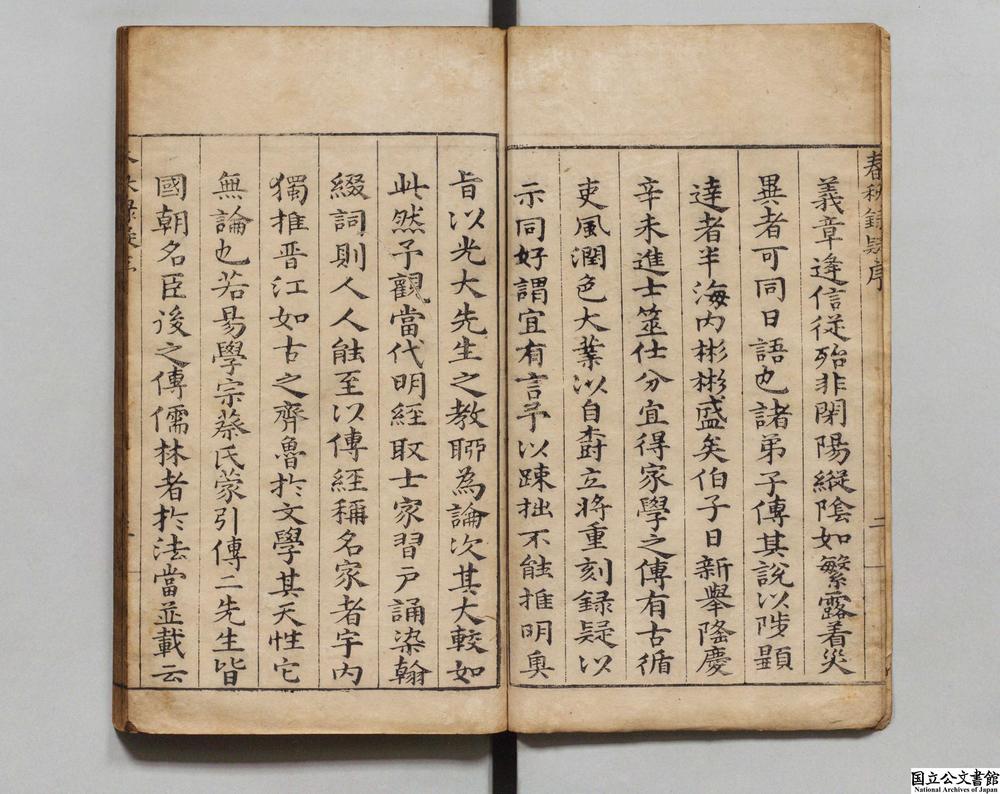 春秋錄疑序
二
義章逢信從殆非閉陽縱陰如繁露着災
異者可同日語也諸弟子傳其說以陟顯
達者半海內彬彬盛矣伯子日新舉隆慶
辛未進士筮仕分宜得家學之傳有古循
吏風潤色大業以自樹立將重刻錄疑以
示同好謂宜有言予以踈拙不能推明奧
旨以光大先生之教聊為論次其大較如
此然予觀當代明經取士家習戶誦染翰
綴詞則人人能至以傳經稱名家者宇內
獨推晉江如古之齊魯於文學其天性它
無論也若易學宗蔡氏蒙引傳二先生皆
國朝名臣後之傳儒林者於法當並載云
国立公文書館
National Archives of Japan